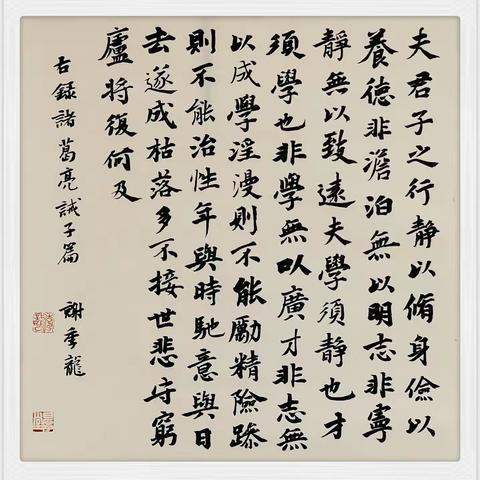 夫君子之行靜以脩身儉以
養德非澹泊無以明志非寧
靜無以致遠夫學須靜也才
須學也非學無以廣才非志無
以成學淫漫則不能勵精險躁
則不能治性年與時馳意與日
去遂成枯落多不接世悲守窮
廬將復何及
右錄諸葛亮誡子篇 謝季龍